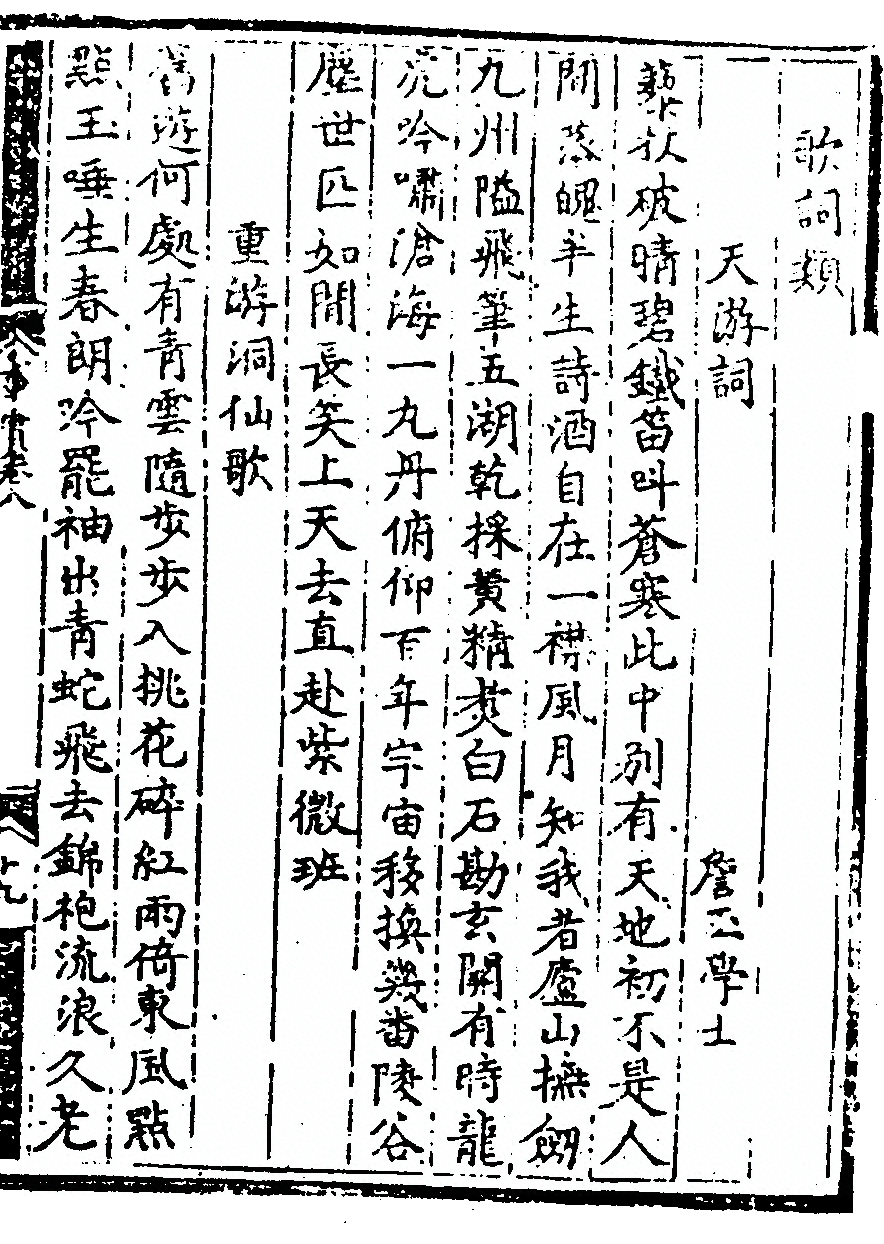 歌詞類
天游詞
詹玉學士
藜杖破晴碧鐵笛叫蒼寒此中別有天地初不是人
間落魄半生詩酒自在一襟風月知我者廬山撫劒
九州隘飛筆五湖乾採黄精煑白石勘玄關有時龍
虎吟嘯滄海一丸丹俯仰百年宇宙移換幾番陵谷
塵世匹如閒長笑上天去直赴紫微班
重游洞仙歌
舊遊何處有青雲隨步步入挑花碎紅雨倚東風點
點玉唾生春朗吟罷袖出青蛇飛去錦袍流浪久老
事實卷八
十九